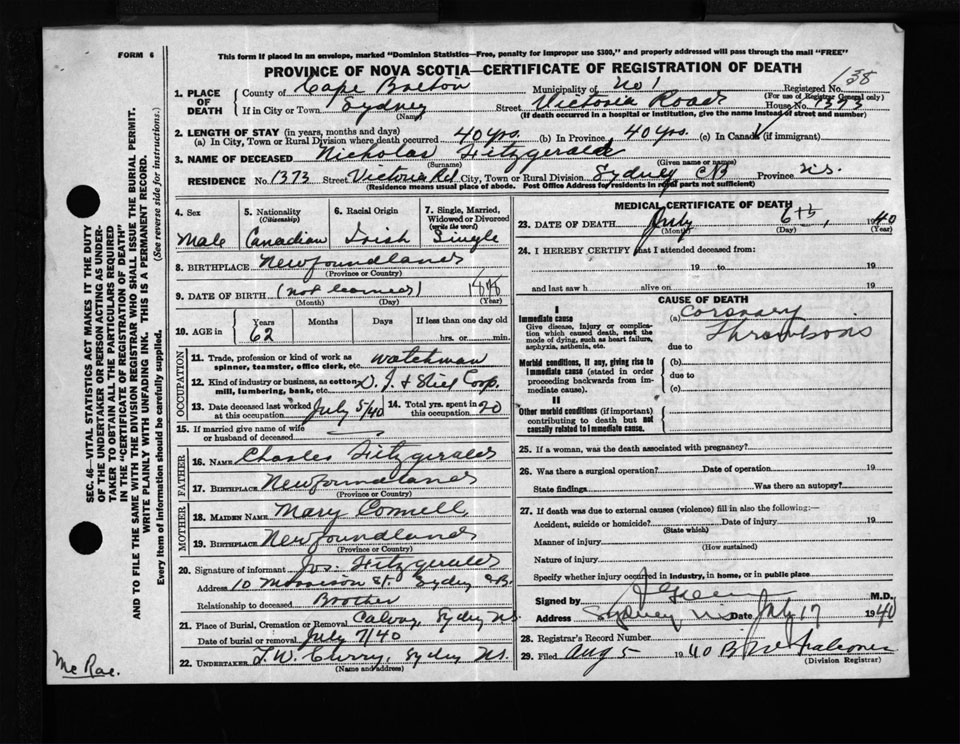 FORM 6
This form if placed in an envelope, marked "Dominion Statistics—Free, penalty for improper use $300," and properly addressed will pass through the mail "FREE"
PROVINCE OF NOVA SCOTIA—CERTIFICATE OF REGISTRATION OF DEATH
138
1. PLACE OF DEATH
County of Cape Breton Municipality of No 1 Registered No.
(For use of Registrar General only)
If in City or Town Sydney Street Victoria Road House No. 1373
(Name) (If death occurred in a hospital or institution, give the name instead of street and number)
2. LENGTH OF STAY (in years, months and days)
(a) In City, Town or Rural Division where death occurred 40 yrs. (b) In Province 40 yrs. (c) In Canada (if immigrant)
3. NAME OF DECEASED Nicholas Fitzgerald
(Surname) (Given name or names)
RESIDENCE No 1373 Street Victoria Rd City, Town or Rural Division Sydney CB Province N.S.
(Residence means usual place of abode. Post Office Address for residents in rural parts not sufficient)
4. Sex
Male
5. Nationality
(Citizenship)
Canadian
6. Racial Origin
Irish
7. Single, Married, Widowed or Divorced
(write the word)
Single
8. BIRTHPLACE Newfoundland
(Province or Country)
9. DATE OF BIRTH (not learned)
(Month) (Day) (Year)
10. AGE in
Years Months Days If less than one day old
62 hrs. or min.
OCCUPATION
11. Trade, profession or kind of work as spinner, teamster, office clerk, etc. Watchman
12. Kind of industry or business, as cotton mill, lumbering, bank, etc. D. I. & Steel Corp.
13. Date deceased last worked at this occupation July 5/40
14. Total yrs. spent in this occupation 20
15. If married give name of wife or husband of deceased
FATHER
16. NAME Charles Fitzgerald
17. BIRTHPLACE Newfoundland
(Province or Country)
MOTHER
18. MAIDEN NAME Mary Connell
19. BIRTHPLACE Newfoundland
(Province or Country)
20. Signature of informant Jos. Fitzgerald
Address 10 Morrison St. Sydney C.B.
Relationship to deceased Brother
21. Place of Burial, Cremation or Removal Calvary, Sydney N.S.
Date of burial or removal July 7/40
22. UNDERTAKER T. W. Curry, Sydney N.S.
(Name and address)
MEDICAL CERTIFICATE OF DEATH
23. DATE OF DEATH July 6th, 1940
(Month) (Day) (Year)
24. I HEREBY CERTIFY that I attended deceased from:
19 to 19
and last saw h alive on 19
CAUSE OF DEATH
I
Immediate cause
Give disease, injury or complication which caused death, not the mode of dying, such as heart failure, asphyxia, asthenia, etc.
(a) Coronary
Thrombosis
due to
Morbid conditions, if any, giving rise to immediate cause (stated in order proceeding backwards from immediate cause).
(b)
due to
(c)
II
Other morbid conditions (if important) contributing to death but not causally related to immediate cause.
25. If a woman, was the death associated with pregnancy?
26. Was there a surgical operation? Date of operation 19
State findings Was there an autopsy?
27. If death was due to external causes (violence) fill in also the following:—
Accident, suicide or homicide? Date of injury 19
(State which)
Manner of injury
(How sustained)
Nature of injury
Specify whether injury occurred in industry, in home, or in public place
Signed by M.D.
Address Sydney N.S. Date July 17 1940
28. Registrar's Record Number
29. Filed Aug 5 1940
(Division Registrar)
SEC. 46—VITAL STATISTICS ACT MAKES IT THE DUTY
OF THE UNDERTAKER OR PERSON ACTING AS UNDER-
TAKER TO OBTAIN ALL THE PARTICULARS REQUIRED
IN THE "CERTIFICATE OF REGISTRATION OF DEATH"
AND TO FILE THE SAME WITH THE DIVISION REGISTRAR WHO SHALL ISSUE THE BURIAL PERMIT.
WRITE PLAINLY WITH UNFADING INK. THIS IS A PERMANENT RECORD.
Every item of information should be carefully supplied. (See reverse side for instructions.)
McRae.